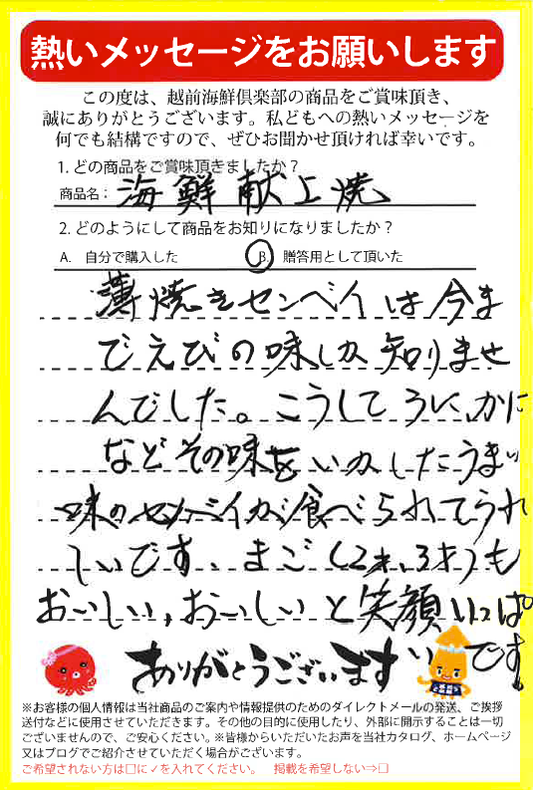 熱いメッセージをお願いします
この度は、越前海鮮倶楽部の商品をご賞味頂き、
誠にありがとうございます。私どもへの熱いメッセージを
何でも結構ですので、ぜひお聞かせ頂ければ幸いです。
1. どの商品をご賞味頂きましたか？
商品名： 海鮮献上焼
2. どのようにして商品をお知りになりましたか？
A. 自分で購入した B. 贈答用として頂いた
薄焼きセンベイは今ま
でえびの味しか知りませ
んでした。こうしてうに、かに
などその味をいかしたうまい
味のセンベイが食べられてうれ
しいです。まご(2才、3才)も
おいしい,おいしいと笑顔いっぱ
いです!
ありがとうございます
※お客様の個人情報は当社商品のご案内や情報提供のためのダイレクトメールの発送、ご挨拶
送付などに使用させていただきます。その他の目的に使用したり、外部に開示することは一切
ございませんので、ご安心ください。※皆様からいただいたお声を当社カタログ、ホームページ
又はブログでご紹介させていただく場合がございます。
ご希望されない方は□に✓を入れてください。 掲載を希望しない⇒□